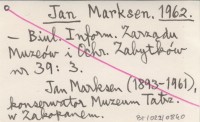 Jan Marksen. 1962.
— Biul. Inform. Zarządu
Muzeów i Ochr. Zabytków
nr 39 : 3.
Jan Marksen (1893-1961),
konserwator Muzeum Tatz.
w Zakopanem.